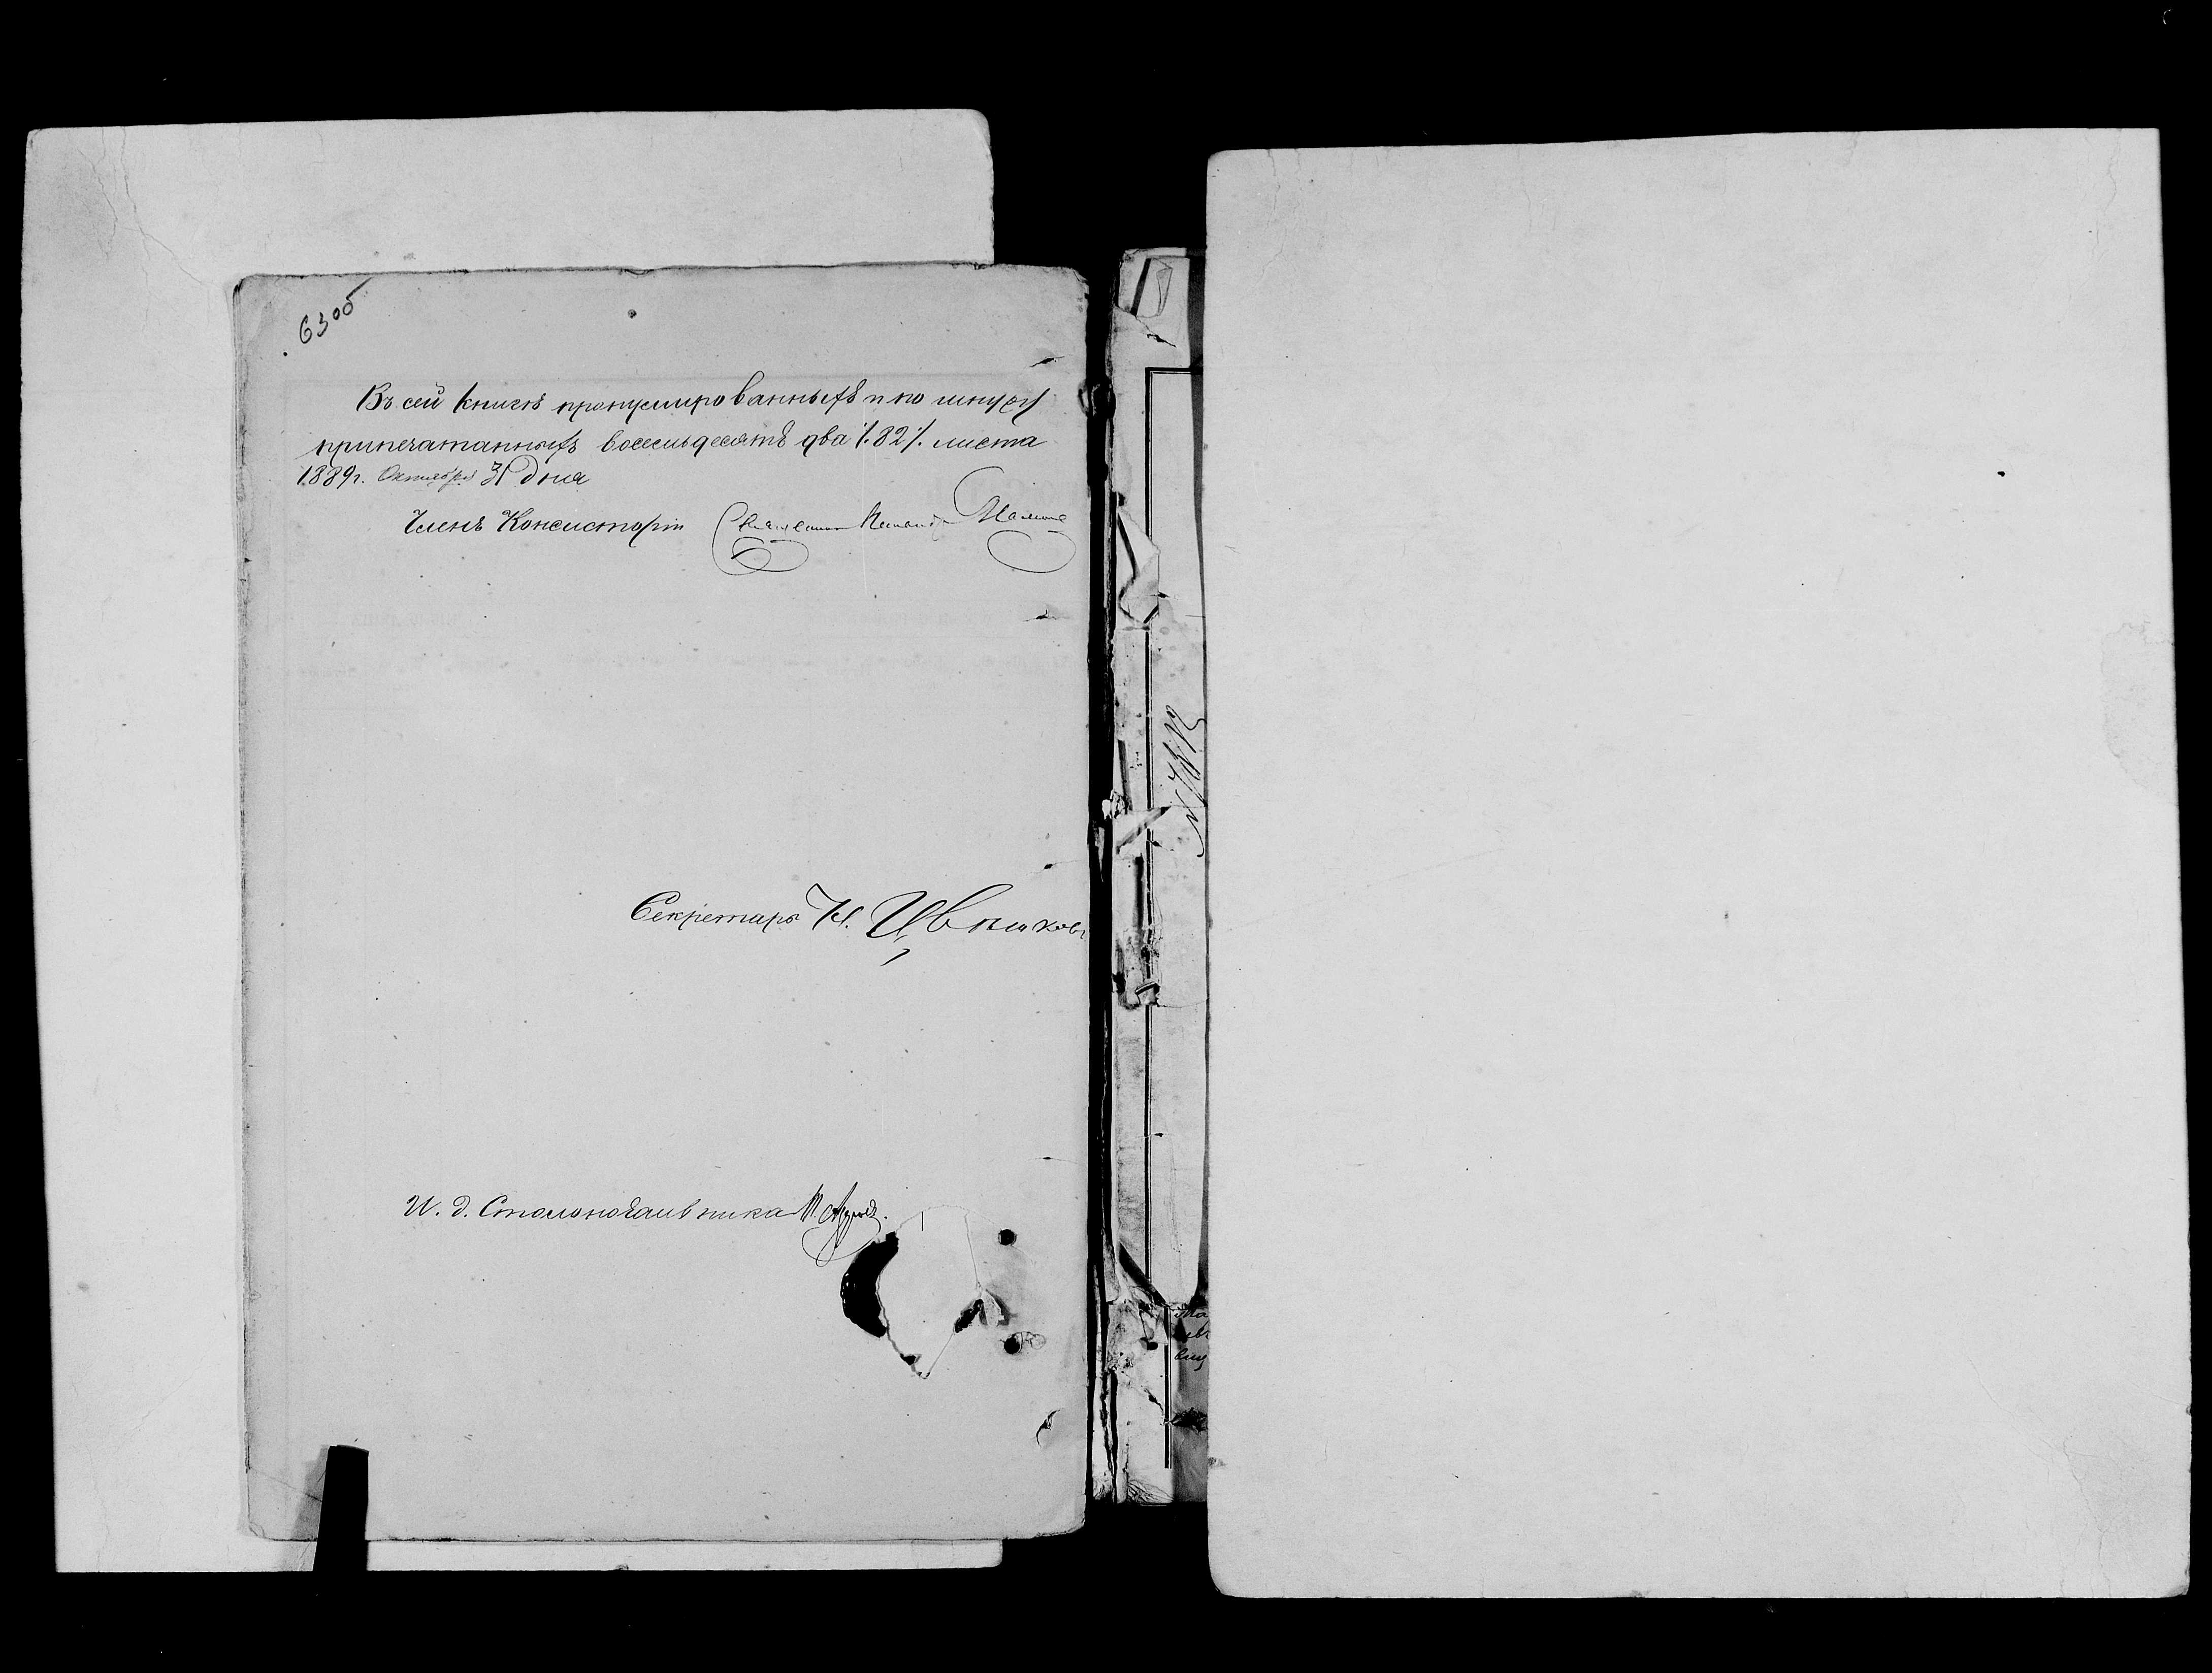 63 об
Въ сей книгѣ пронумерованныхъ и по шнуру
припечатанныхъ восемьдесятъ два /:82:/ листа
1889г. Октября 31 дня
Членъ Консисторіи Священникъ
Секретарь Н. Цвѣтковъ
И. д. Столоначальника